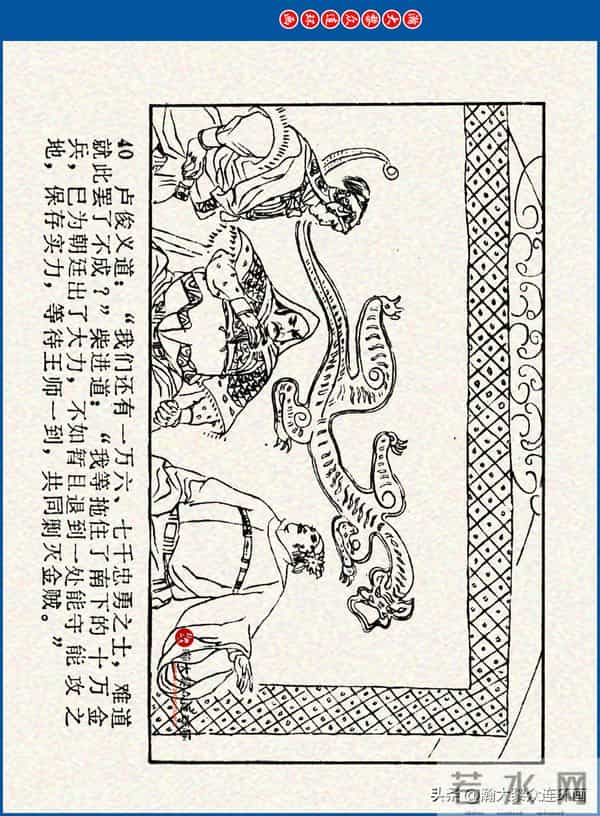 瀚大黎众连环画
40 卢俊义道：“我们还有一万六、七千忠勇之士，难道
就此罢了不成？”柴进道：“我等拖住了南下的十万金
兵，已为朝廷出了大力，不如暂且退到一处能守能攻之
地，保存实力，等待王师一到，共同剿灭金贼。”
若水网
头条 @瀚大黎众连环画